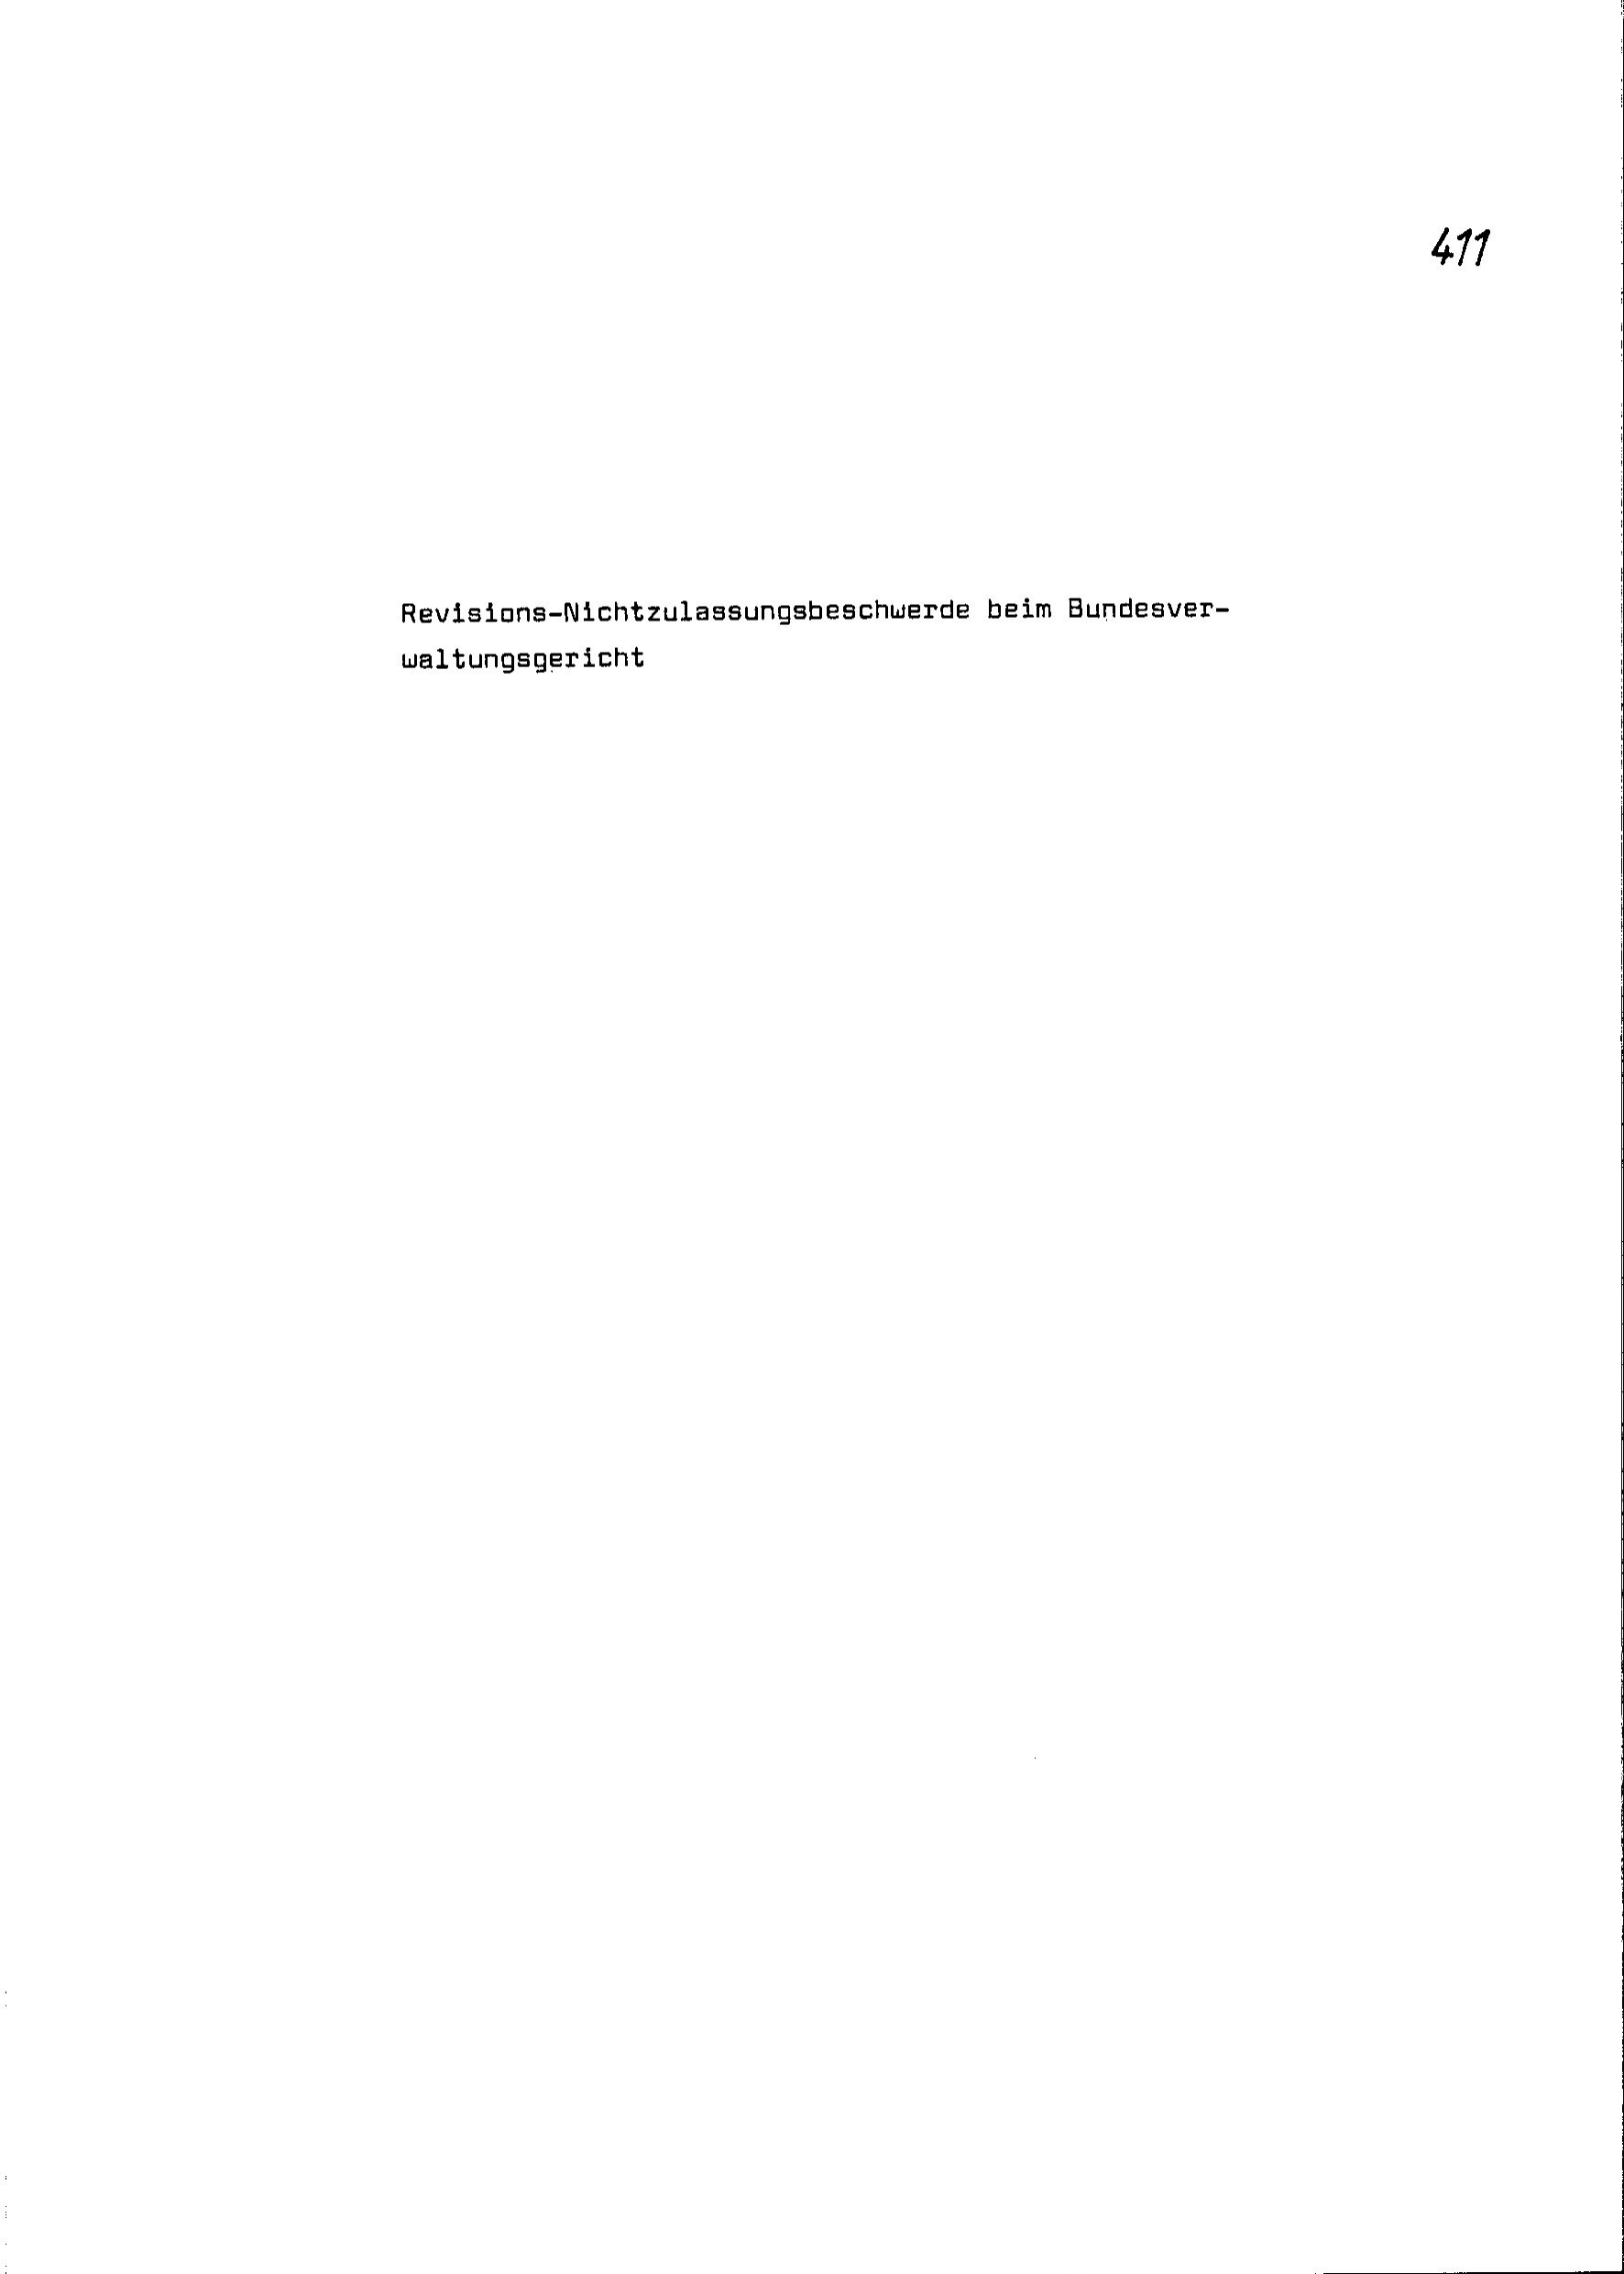 411
Revisions-Nichtzulassungsbeschwerde beim Bundesver-
waltungsgericht